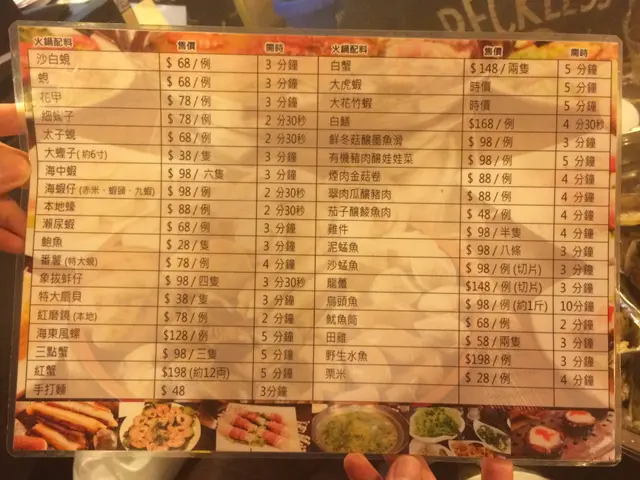 RECKLESS
火鍋配料 售價 需時
沙白蜆 $ 68 / 例 3 分鐘
蜆 $ 68 / 例 3 分鐘
花甲 $ 78 / 例 3 分鐘
細蟶子 $ 78 / 例 2 分30秒
太子蜆 $ 68 / 例 2 分30秒
大蟶子(約6寸) $ 38 / 隻 3 分鐘
海中蝦 $ 98 / 六隻 3 分鐘
海蝦仔(赤米、蝦頭、九蝦) $ 98 / 例 2 分30秒
本地蠔 $ 88 / 例 2 分30秒
瀨尿蝦 $ 68 / 例 3 分鐘
鮑魚 $ 28 / 隻 3 分鐘
番薯(特大蜆) $ 78 / 例 4 分鐘
象拔蚌仔 $ 98 / 四隻 3 分30秒
特大扇貝 $ 38 / 隻 3 分鐘
紅磨鐃(本地) $ 78 / 例 2 分鐘
海東風螺 $128 / 例 5 分鐘
三點蟹 $ 98 / 三隻 5 分鐘
紅蟹 $198 (約12両) 5 分鐘
手打麵 $ 48 3分鐘
火鍋配料 售價 需時
白蟹 $ 148 / 兩隻 5 分鐘
大虎蝦 時價 5 分鐘
大花竹蝦 時價 5 分鐘
白鱔 $168 / 例 4 分30秒
鮮冬菇釀墨魚滑 $ 98 / 例 3 分鐘
有機豬肉釀娃娃菜 $ 98 / 例 5 分鐘
煙肉金菇卷 $ 88 / 例 4 分鐘
翠肉瓜釀豬肉 $ 88 / 例 4 分鐘
茄子釀鯪魚肉 $ 48 / 例 4 分鐘
雞件 $ 98 / 半隻 4 分鐘
泥鯭魚 $ 98 / 八條 3 分鐘
沙鯭魚 $ 98 / 例 (切片) 3 分鐘
龍躉 $148 / 例 (切片) 3 分鐘
烏頭魚 $ 98 / 例 (約1斤) 10分鐘
魷魚筒 $ 68 / 例 2 分鐘
田雞 $ 58 / 兩隻 3 分鐘
野生水魚 $198 / 例 3 分鐘
粟米 $ 28 / 例 4 分鐘